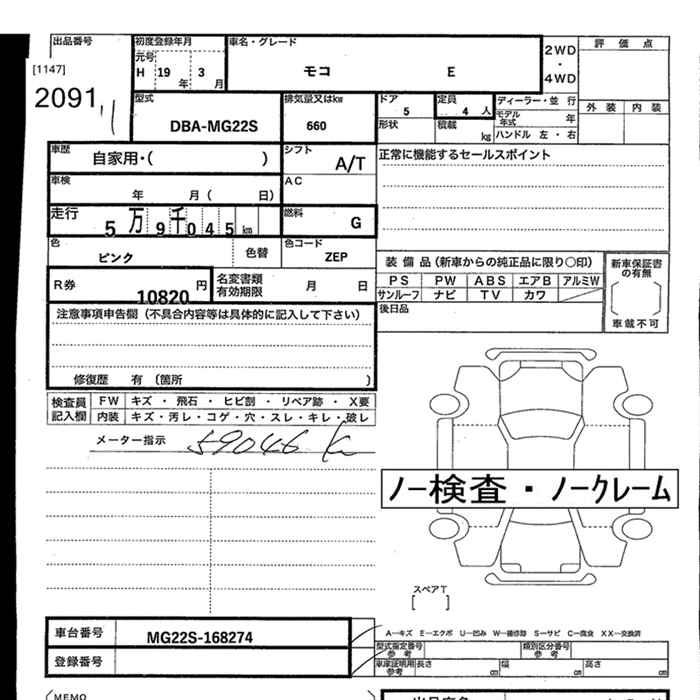 出品番号 初度登録年月 車名・グレード
[1147] 元号 H 19年 3月 モコ E 2WD・4WD 評価点
2091
型式 排気量又はkw ドア 定員 ディーラー・並行 外装 内装
DBA-MG22S 660 5 4人 モデル年式 年
形状 積載 kg ハンドル 左・右
車歴 自家用・( ) シフト A/T 正常に機能するセールスポイント
車検 年 月( 日) AC
走行 5万9千045km 燃料 G
色 ピンク 色替 色コード ZEP
装備品(新車からの純正品に限り〇印) 新車保証書の有無
R券 10820円 名変書類有効期限 月 日 PS PW ABS エアB アルミW
サンルーフ ナビ TV カワ
注意事項申告欄(不具合内容等は具体的に記入して下さい) 後日品 車載不可
修復歴 有 (箇所 )
検査員記入欄 FW キズ・飛石・ヒビ割・リペア跡・X要
内装 キズ・汚レ・コゲ・穴・スレ・キレ・破レ
メーター指示 59046 K
ノー検査・ノークレーム
スペアT
[ ]
車台番号 MG22S-168274 A-キズ E-エクボ U-凹み W-補修跡 S-サビ C-腐食 XX-交換済
型式指定番号 参考 類別区分番号 参考
登録番号 車庫証明用参考 長さ cm 幅 cm 高さ cm
MEMO